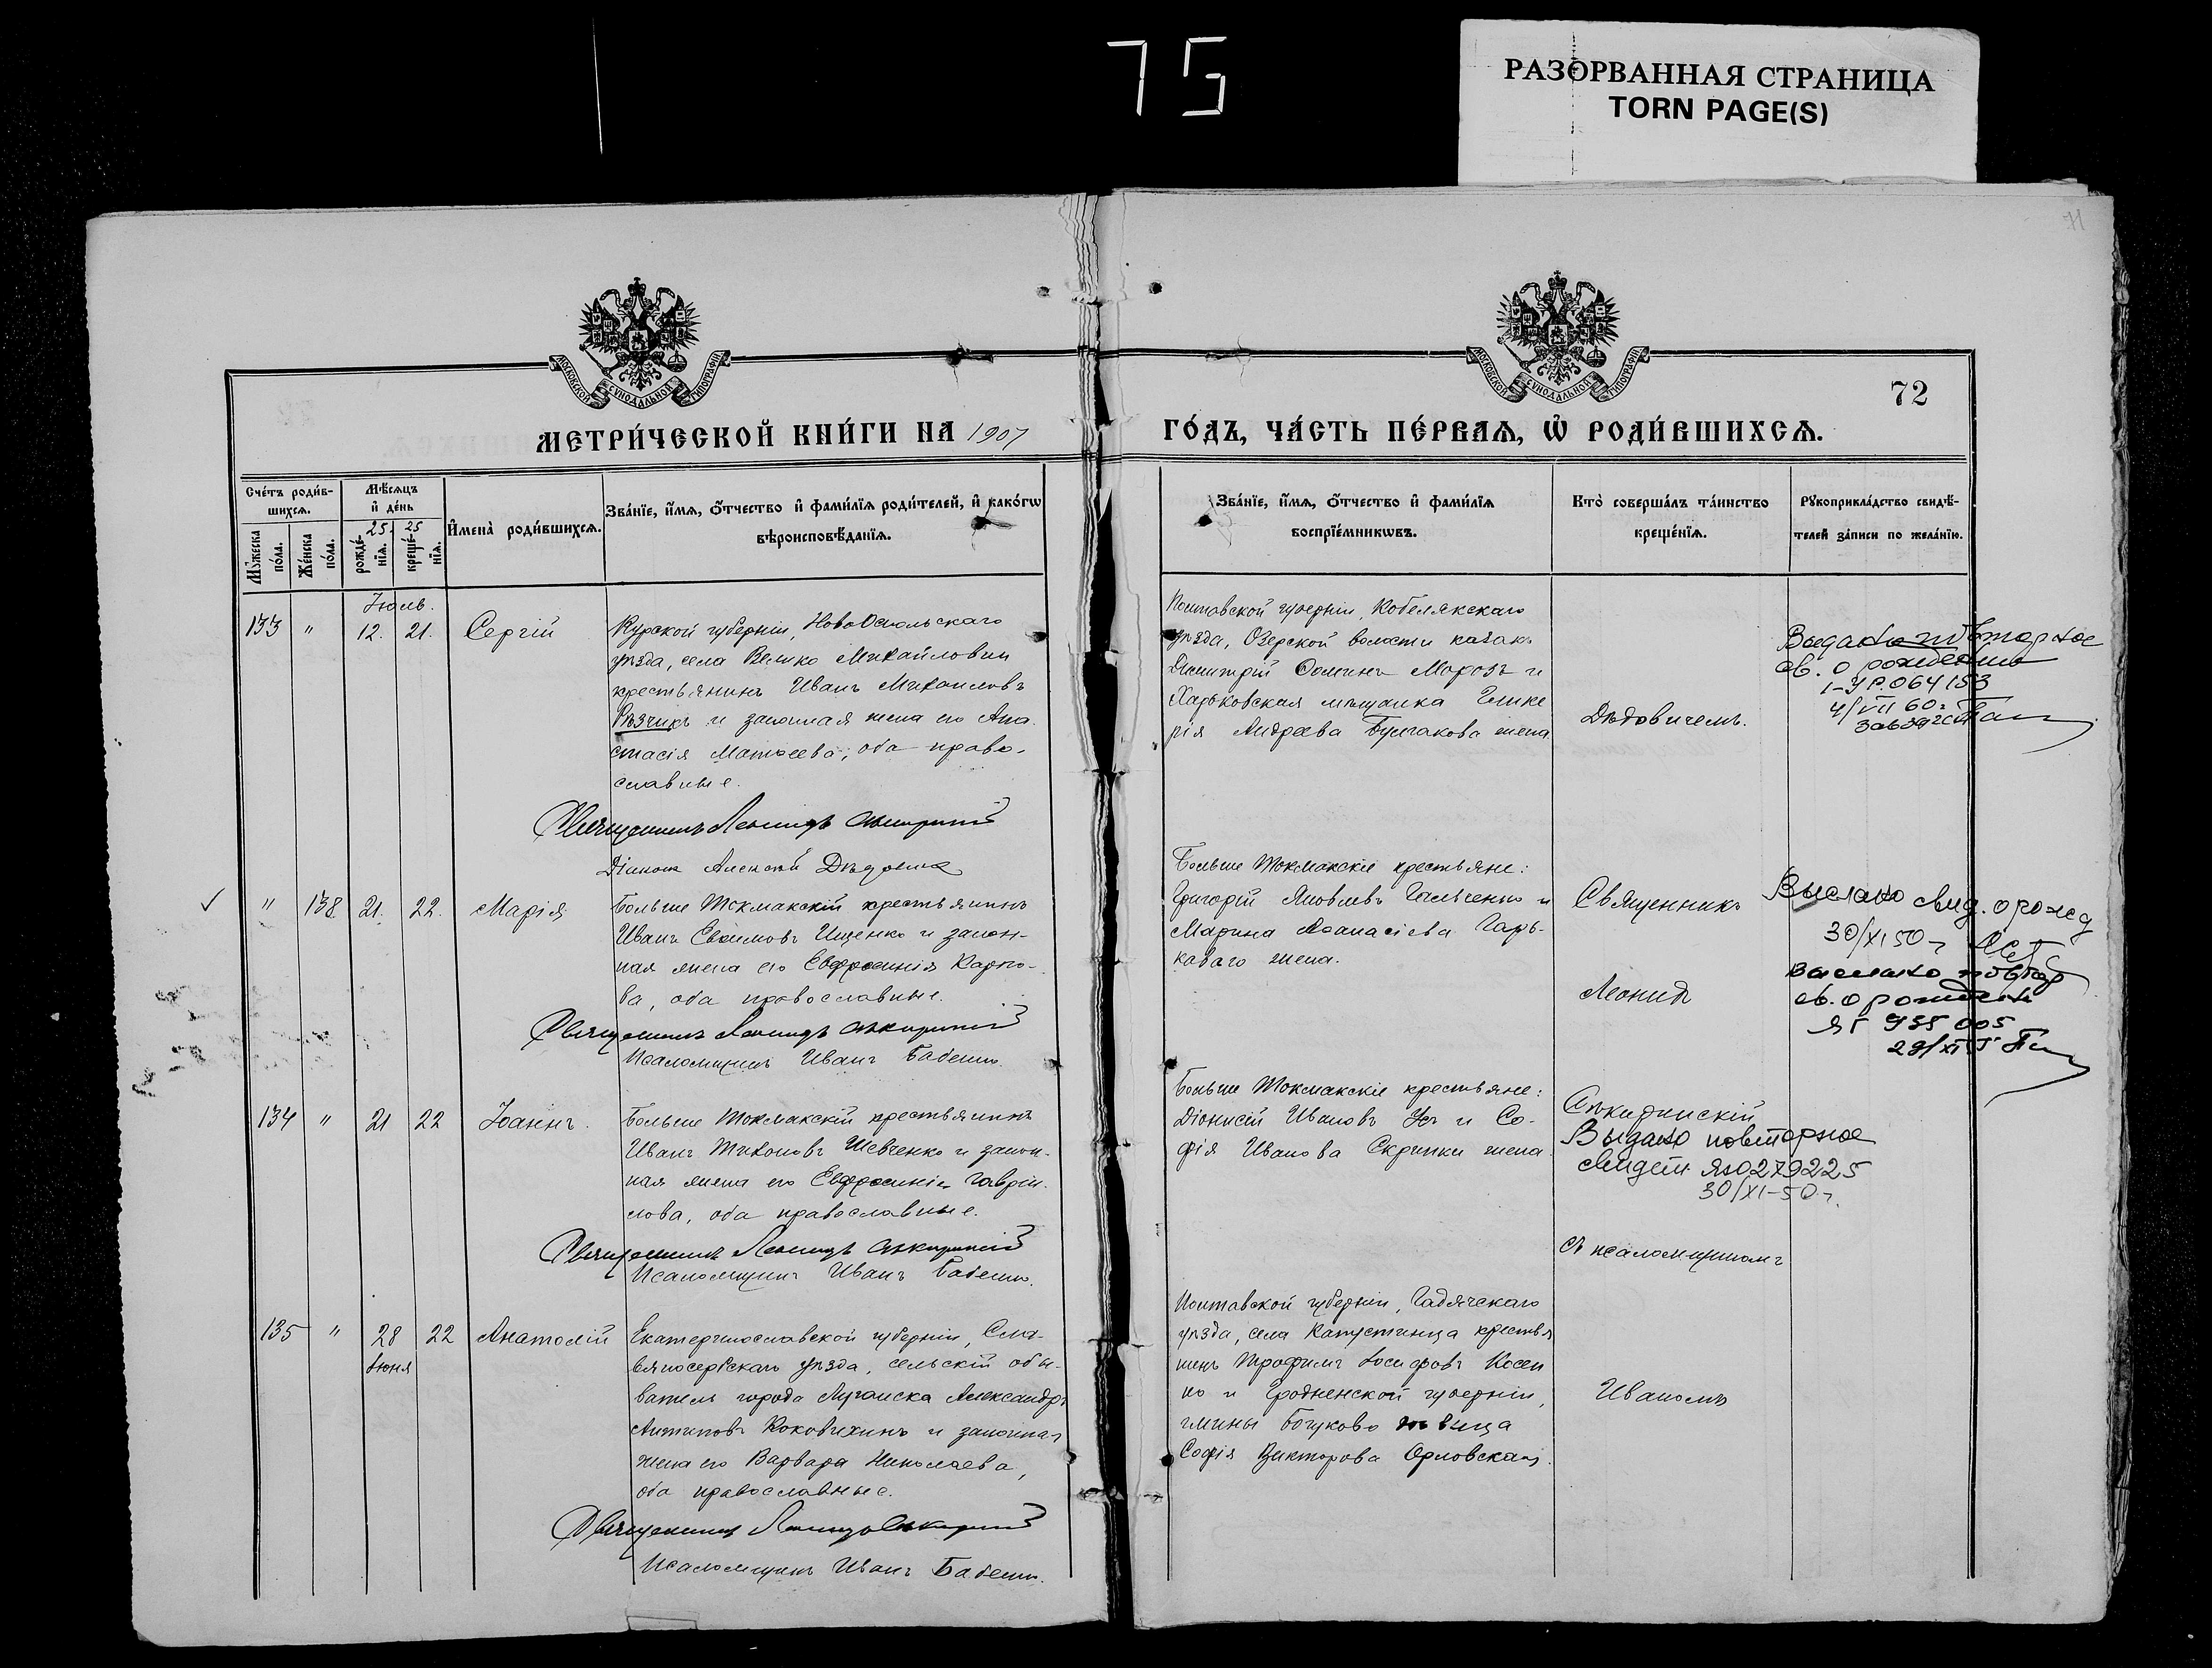 75
РАЗОРВАННАЯ СТРАНИЦА
TORN PAGE(S)
71
МОСКОВСКОЙ СУНОДАЛЬНОЙ ТИПОГРАФІИ
МОСКОВСКОЙ СУНОДАЛЬНОЙ ТИПОГРАФІИ
72
МЕТРИ́ЧЕСКОЙ КНИ́ГИ НА 1907
ГО́ДЪ, ЧА́СТЬ ПЕ́РВАѦ, Ѽ РОДИ́ВШИХСѦ.
Сче́тъ роди́в-
шихсѧ.
Мꙋ́жеска по́ла.
Же́нска по́ла.
Мѣ́сѧцъ
и҆ де́нь
25. 25
рожде́-
нїѧ.
креще́-
нїѧ.
И҆мена̀ роди́вшихсѧ.
Зва́нїе, и҆́мѧ, ѻ҆́тчество и҆ фами́лїѧ роди́телей, и҆ како́гѡ
вѣроисповѣ́данїѧ.
Зва́нїе, и҆́мѧ, ѻ҆́тчество и҆ фами́лїѧ
воспрїе́мникѡвъ.
Кто̀ соверша́лъ та́инство
креще́нїѧ.
Рꙋкоприкла́дство свидѣ́-
телей за́писи по жела́нїю.
Іюль.
133 " 12. 21. Сергій
Курской губерніи, НовоОскольскаго
уѣзда, села Велико Михайловки
крестьянинъ Иванъ Михаиловъ
Рѣзчикъ и законная жена его Ана
стасія Матѳеева, оба право-
славные.
Священникъ Леонидъ
Діаконъ Алексѣй Дѣдовичъ
Полтавской губерніи, Кобелякскаго
уѣзда, Озерской волости казакъ
Димитрій Ѳоминъ Морозъ и
Харьковская мѣщанка Глике
рія Андреева Булгакова жена
Дѣдовичемъ.
Выдано повторное
св. о рождении
064153
4/VII 60г
" 138 21. 22. Марія
Больше Токмакскій крестьянинъ
Иванъ Евѳимовъ Ищенко и закон-
ная жена его Евфросинія Карпо-
ва, оба православные.
Священникъ Леонидъ
Псаломщикъ Иванъ Бабенко.
Больше Токмакскіе крестьяне:
Григорій Яковлевъ и
Марина Аѳанасіева Гарь-
каваго жена.
Священникъ
Леонидъ
Выслано свид. о рожд
30/XI 50г
выслано повтор
св. о рождени
134 " 21 22 Іоаннъ.
Больше Токмакскій крестьянинъ
Иванъ Тихоновъ Шевченко и закон-
ная жена его Евфросинія Гавріи-
лова, оба православные.
Священникъ Леонидъ
Псаломщикъ Иванъ Бабенко.
Больше Токмакскіе крестьяне:
Діонисій Ивановъ Усъ и Со-
фія Иванова Скрипки жена.
Выдано повторное
свидет ЯЮ 279225
30/XI-50г.
съ псаломщикомъ
135 " 28 22 Анатолій
Іюня
Екатеринославской губерніи, Сла-
вяносербскаго уѣзда, сельскій обы-
ватель города Луганска Александръ
Антиповъ Коковихинъ и законная
жена его Варвара Николаева,
оба православные.
Священникъ Леонидъ
Псаломщикъ Иванъ Бабенко.
Полтавской губерніи, Гадячскаго
уѣзда, села Капустинца крестья
нинъ Трофимъ Іосифовъ Косен
ко и Гродненской губерніи,
гмины
Софія Викторова Орловская.
Иваномъ